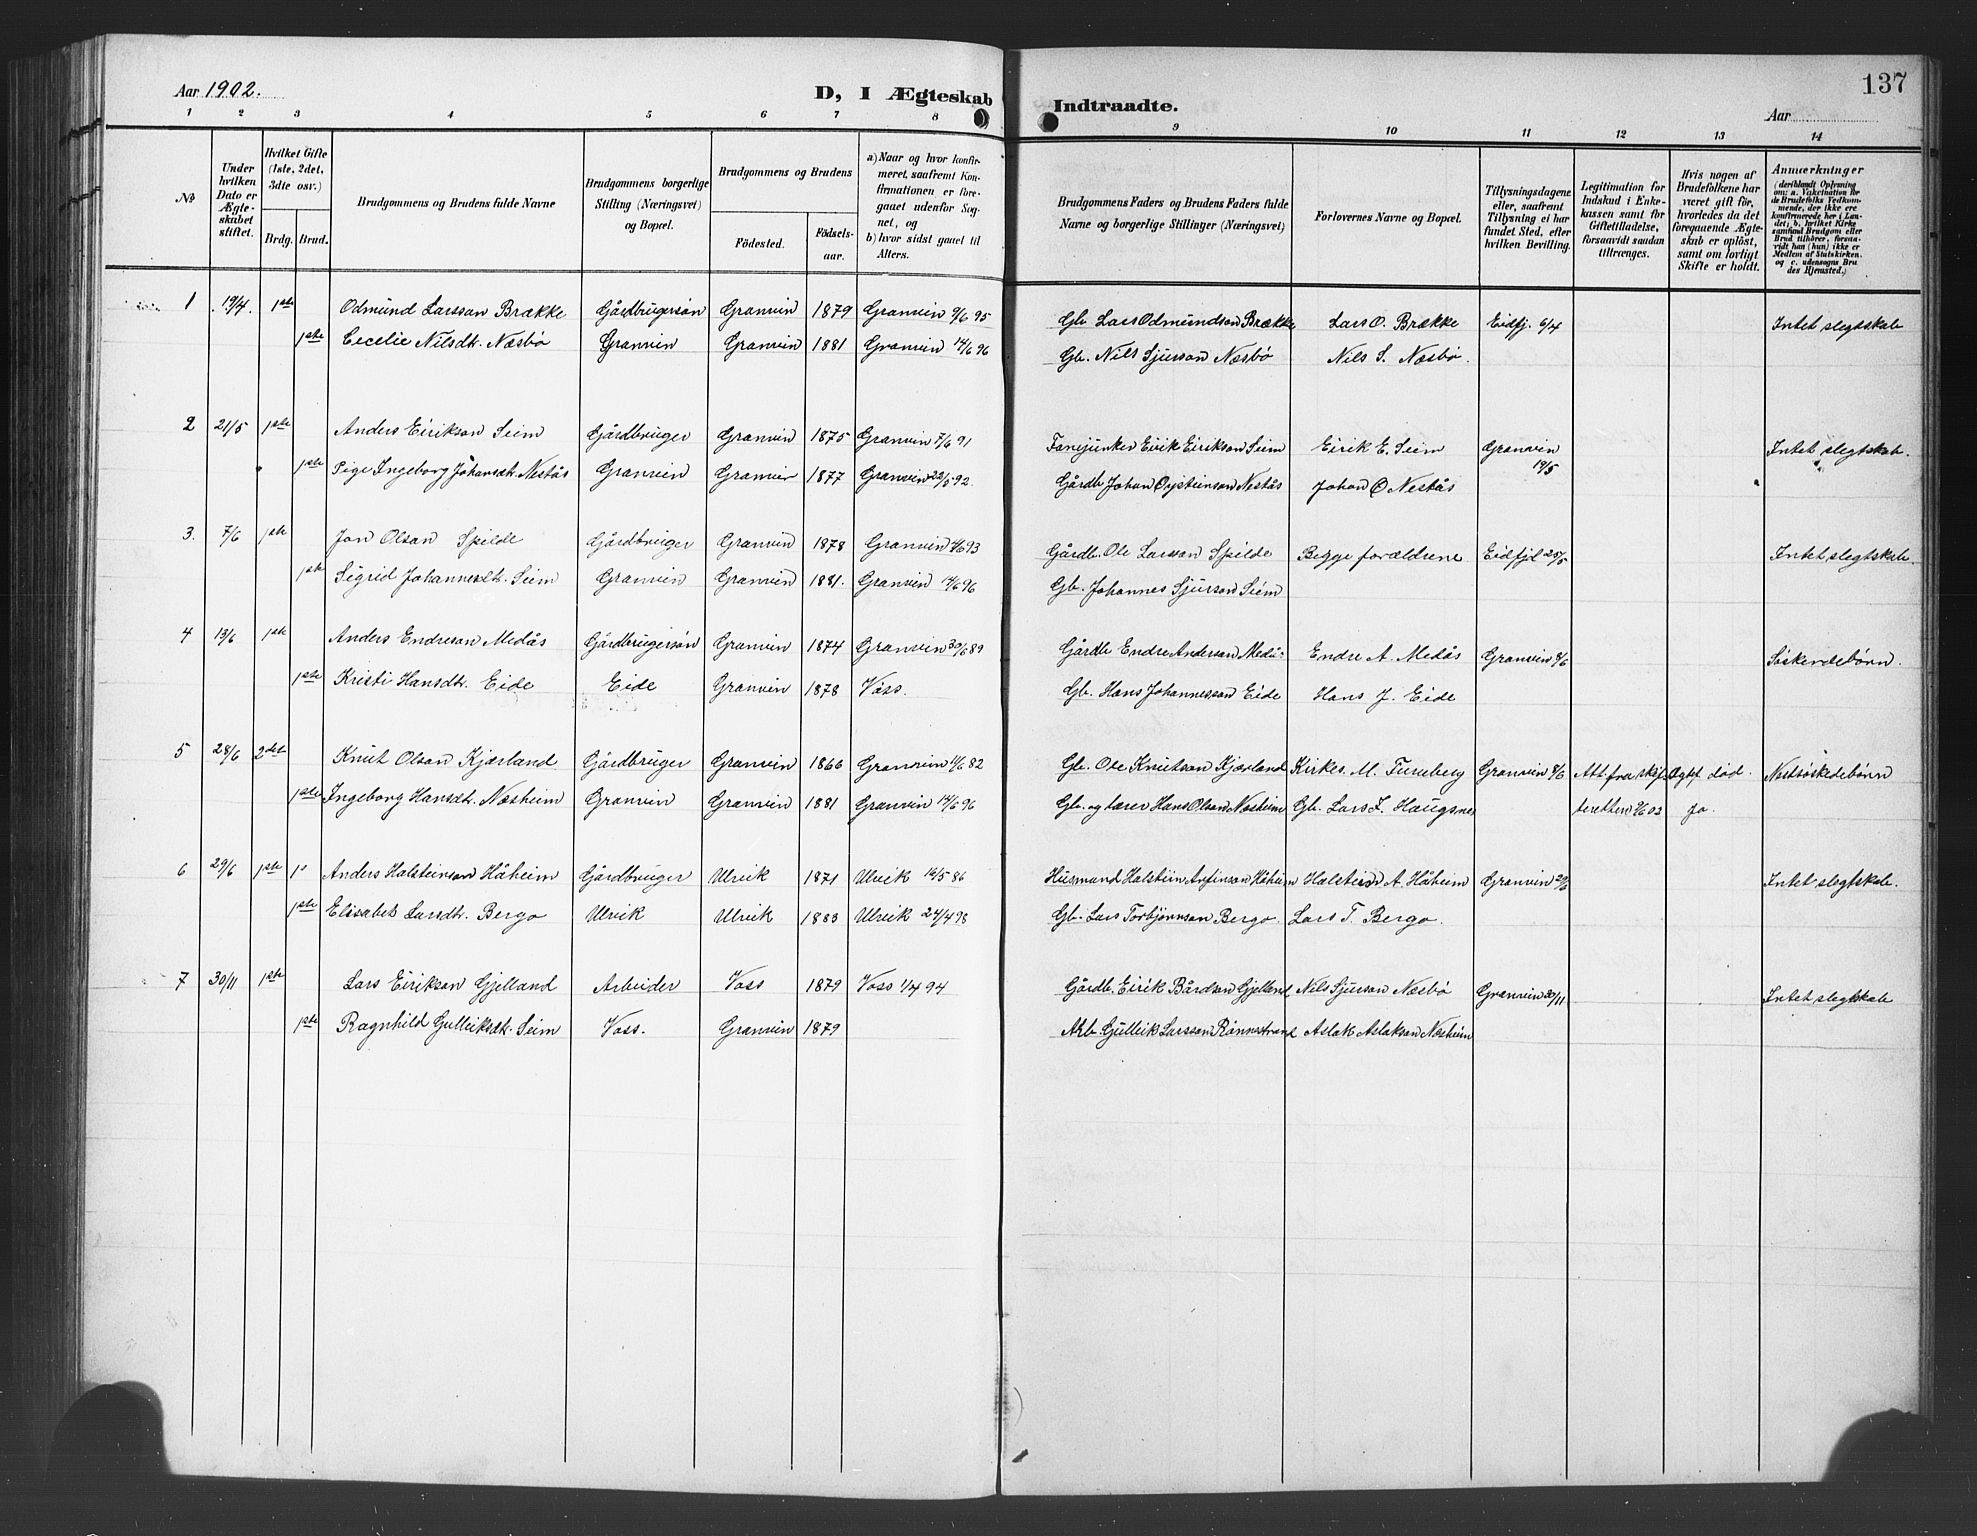 137
Aar 1902.
D, I Ægteskab Indtraadte.
Aar
1 2 3 4 5 6 7 8 9 10 11 12 13 14
No
Under hvilken Dato er Ægteskabet stiftet.
Hvilket Gifte (1ste, 2det, 3dte osv.)
Brdg. Brud.
Brudgommens og Brudens fulde Navne
Brudgommens borgerlige Stilling (Næringsvei) og Bopæl.
Brudgommens og Brudens
Födested. Födselsaar.
a) Naar og hvor konfirmeret, saafremt Konfirmationen er foregaaet udenfor Sognet, og
b) hvor sidst gaaet til Alters.
Brudgommens Faders og Brudens Faders fulde Navne og borgerlige Stillinger (Næringsvei)
Forlovernes Navne og Bopæl.
Tillysningsdagene eller, saafremt Tillysning ei har fundet Sted, efter hvilken Bevilling.
Legitimation for Indskud i Enkekassen samt for Giftetilladelse, forsaavidt saadan tiltrænges.
Hvis nogen af Brudefolkene har været gift för, hvorledes da det foregaaende Ægteskab er oplöst, samt om lovligt Skifte er holdt.
Anmærkninger (deriblandt Oplysning om: a. Vakcination for de Brudefolks Vedkommende, der ikke ere konfirmerede her i Landet; b. hvilket Kirkesamfund Brudgom eller Brud tilhörer, forsaavidt han (hun) ikke er Medlem af Statskirken, og c. udensogns Brudes Hjemsted.)
1 19/4. 1ste Odmund Larsson Brække Gårdbrugersön Granvin 1879 Granvin 9/6 95 Gb. Lars Odmundson Brække Lars O. Brække Eidfj. 6/4 Intet slegtskab
1ste Cecelie Nilsdt. Næsbö Granvin Granvin 1881 Granvin 14/6 96 Gb. Nils Sjurson Næsbö Nils S. Næsbö.
2 21/5 1ste Anders Eirikson Seim Gårdbruger Granvin 1875 Granvin 7/6 91 Fanejunker Eirik Eirikson Seim Eirik E. Seim Granvin 19/5 Intet slegtskab.
1ste Pige Ingeborg Johansdt. Nestås Granvin Granvin 1877 Granvin 22/5 92. Gårdb Johan Oysteinson Nestås Johan O Nestås
3. 7/6 1ste Jon Olson Spilde Gårdbruger Granvin 1878 Granvin 4/6 93 Gårdb. Ole Larsson Spilde Begge forældrene Eidfjd 25/5 Intet slegtskab.
1ste Sigrid Johannesdt. Seim Granvin Granvin 1881. Granvin 14/6 96 Gb. Johannes Sjurson Seim
4 13/6 1ste Anders Endreson Medås Gårdbrugersön Granvin 1874 Granvin 30/6 89 Gårdb Endre Anderson Medås Endre A. Medås Granvin 8/6 Söskendebørn.
1ste Kristi Hansdt. Eide Eide Granvin 1878 Voss. Gb. Hans Johannesson Eide Hans J. Eide
5 28/6 2det Knut Olson Kjærland Gårdbruger Granvin 1866 Granvin 11/6 82 Gb. Ole Knutson Kjærland Kirkes. M. Tuneberg Granvin 8/6 Att. fra skifteretten 9/6 02 Ægtf. död. Ja. Nestsöskedebörn
1ste Ingeborg Hansdt. Næsheim Granvin Granvin 1881 Granvin 14/6 96 Gb. og lærer Hans Olson Nesheim Gb. Lars L. Haugsnes
6 29/6 1ste 1° Anders Halsteinson Håheim Gårdbruger Ulvik 1871 Ulvik 16/5 86 Husmand Halstein Anfinson Håheim Halstein A Håheim Granvin Intet slegtskab.
1ste Elisabet Larsdt. Bergo Ulvik Ulvik 1883 Ulvik 24/4 98 Gb. Lars Torbjörnson Bergo. Lars T. Bergo.
7 30/11 1ste Lars Eirikson Gjelland Arbeider Voss 1879 Voss 1/4 94 Gårdb. Eirik Bårdson Gjelland Nils Sjurson Næsbö Granvin 30/11 Intet slegtskab
1ste Ragnhild Gulleiksdt. Seim Voss. Granvin 1879 Arb. Gulleik Larsson Rönnestrand Aslak Aslakson Nesheim